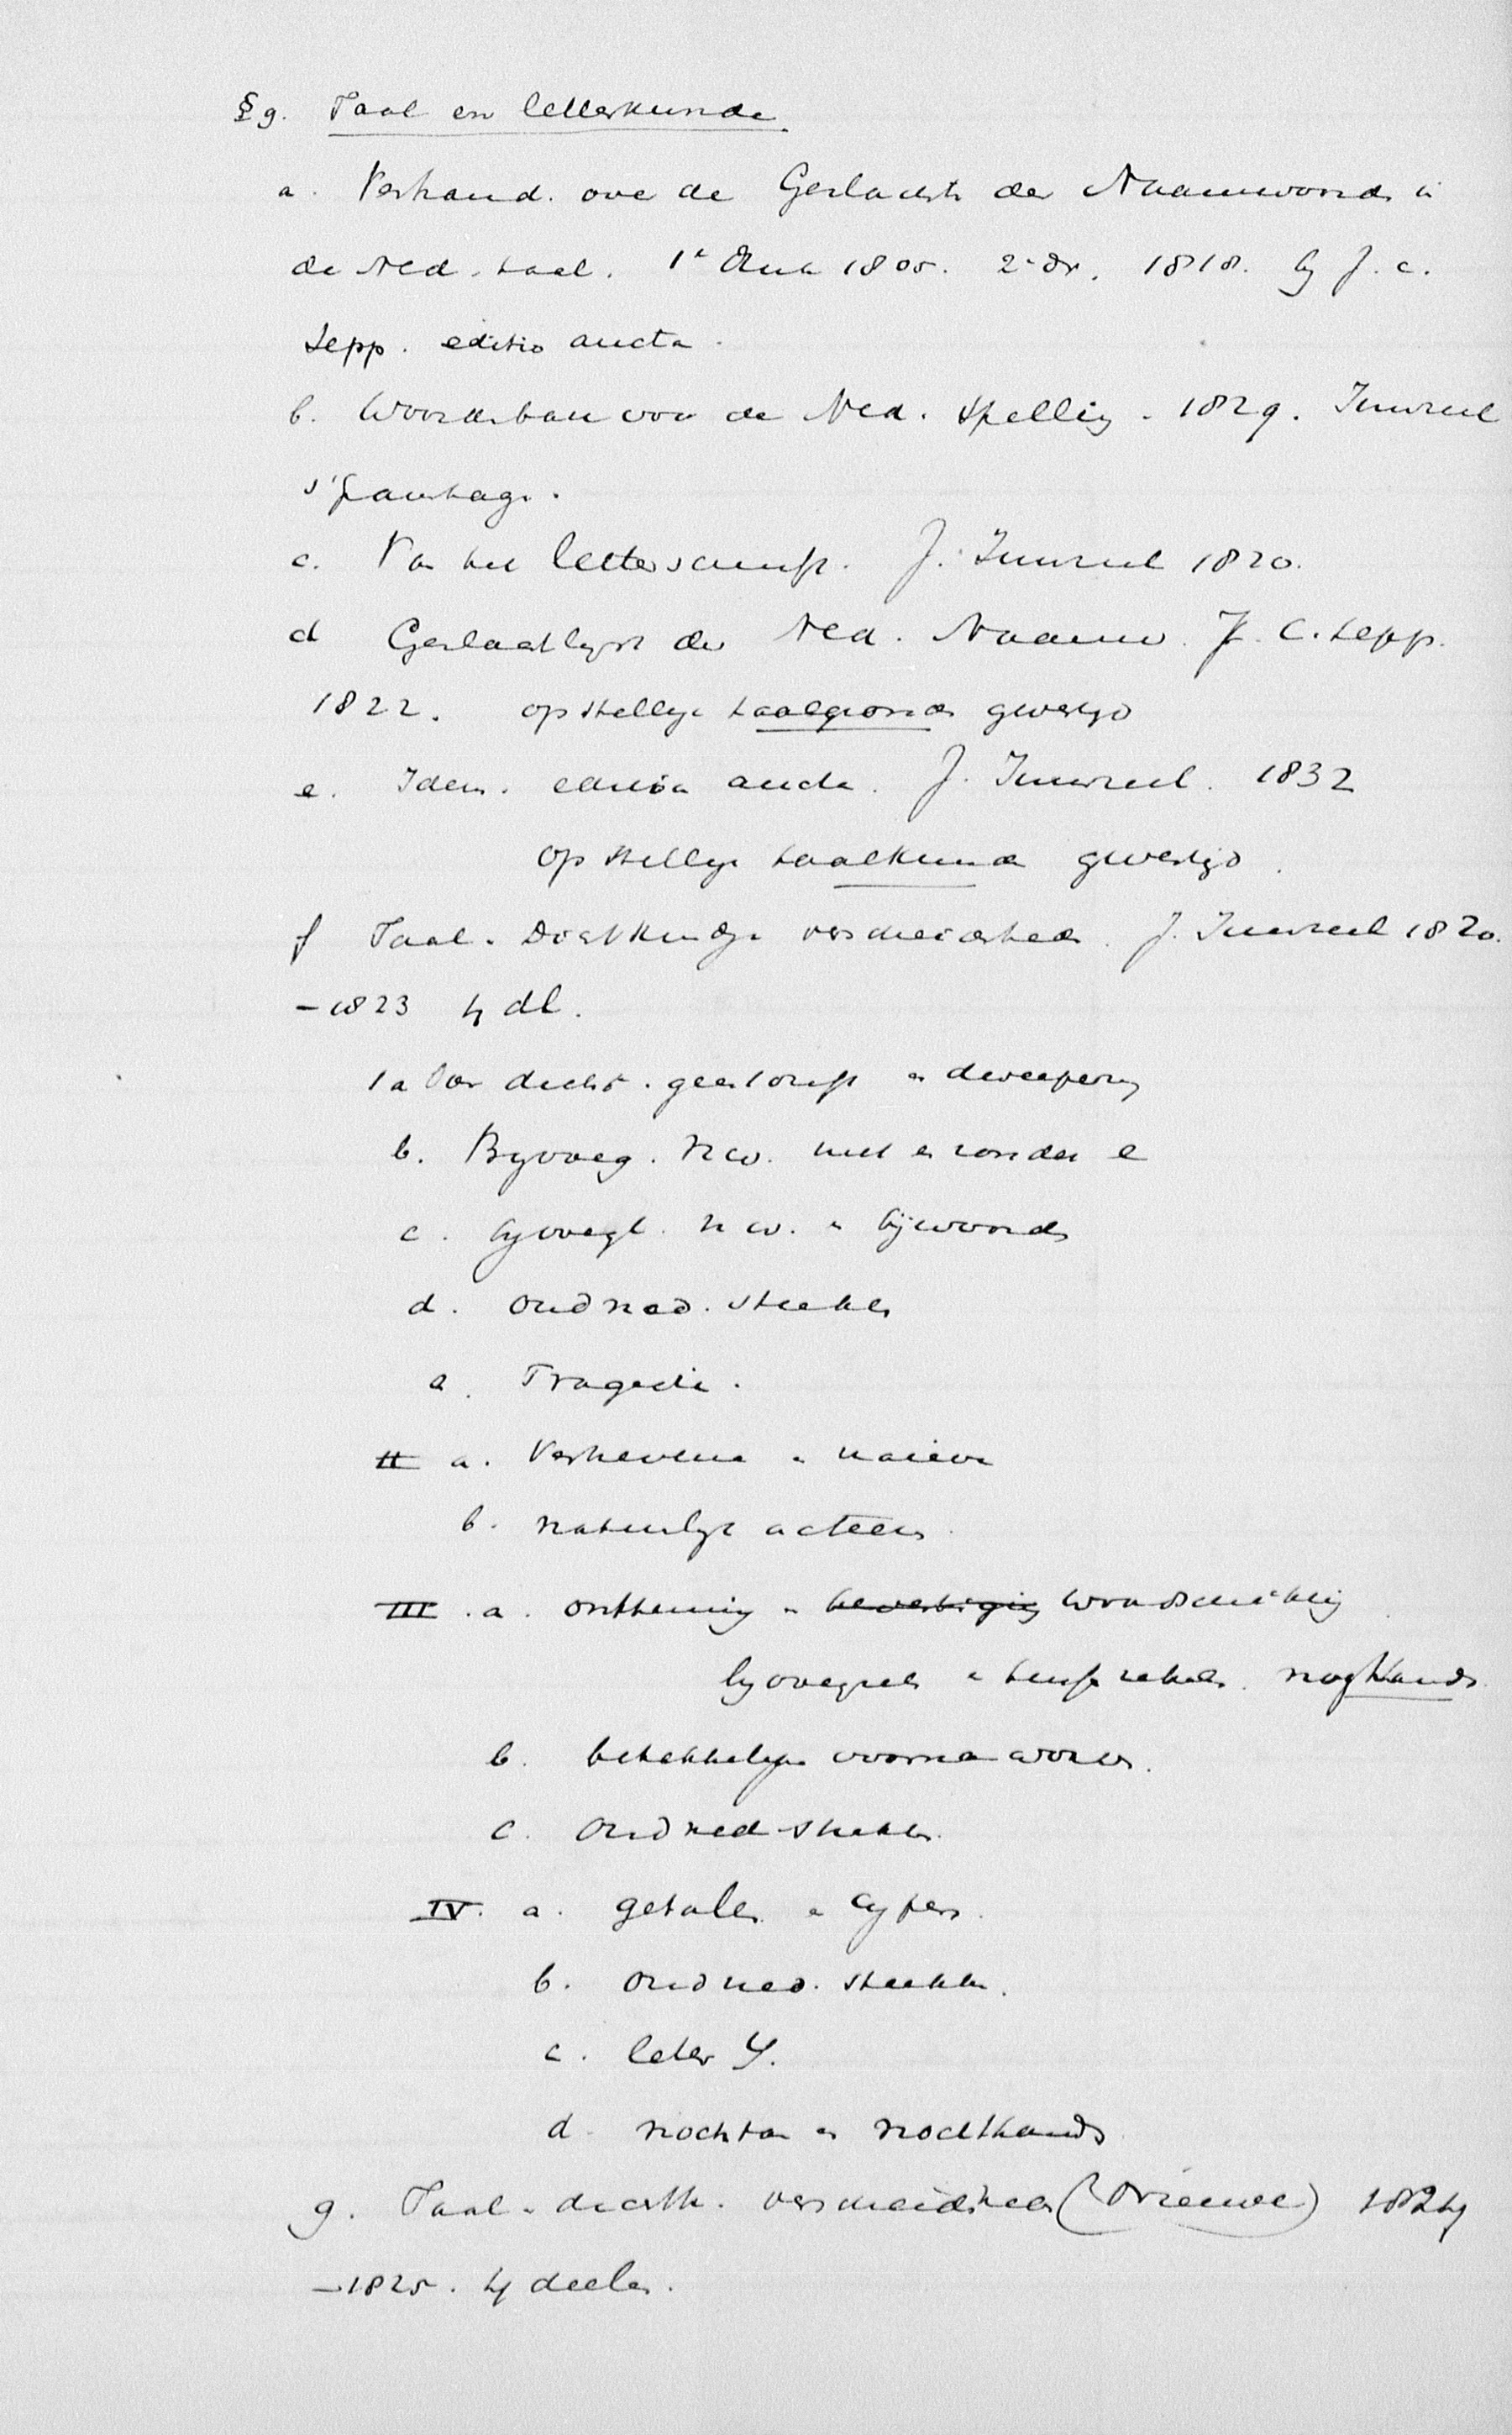 § g. Taal en letterkunde.
a. Verhand. over de Geslachten der Naamwoorden in
de Ned. taal. 1e druk 1805. 2e dr. 1818. by J. C.
Sepp. editio aucta.
b. Woordenboek voor de Ned. Spelling. 1829. Immerzeel
s'Gravenhage.
c. Van het letterschrift. J. Immerzeel 1820.
d Geslachtlyst der Ned. Naamw. J. C. Sepp.
1822. op stellige taalgronden gevestigd
e. Idem. editio aucta. J. Immerzeel. 1832
op stellige taalkunde gevestigd.
f Taal- Dichtkundige verscheidenheden. J. Immerzeel 1820.
– 1823 4 dl.
1 a Over dicht. geestdrift en dweepery
b. Byvoeg. Nw. met en zonder e
c. byvoegl. nw. en bijwoorden
d. oud ned. stukken
a. Tragedie.
II a. Verhevene en naieve
b. natuurlyk acteren.
III. a. ontkenning en bevestiging woordschikking
byvoegsels en nogthands.
b. betrekkelyke voornaamwoorden.
c. Oud ned stukken.
IV. a. getalen en cyfers.
b. Oud ned. stukken.
c. letter Y.
d. nochtan en nochthands
g. Taal- dichtk. verscheidenheden (Nieuwe) 1824
– 1825. 4 deelen.